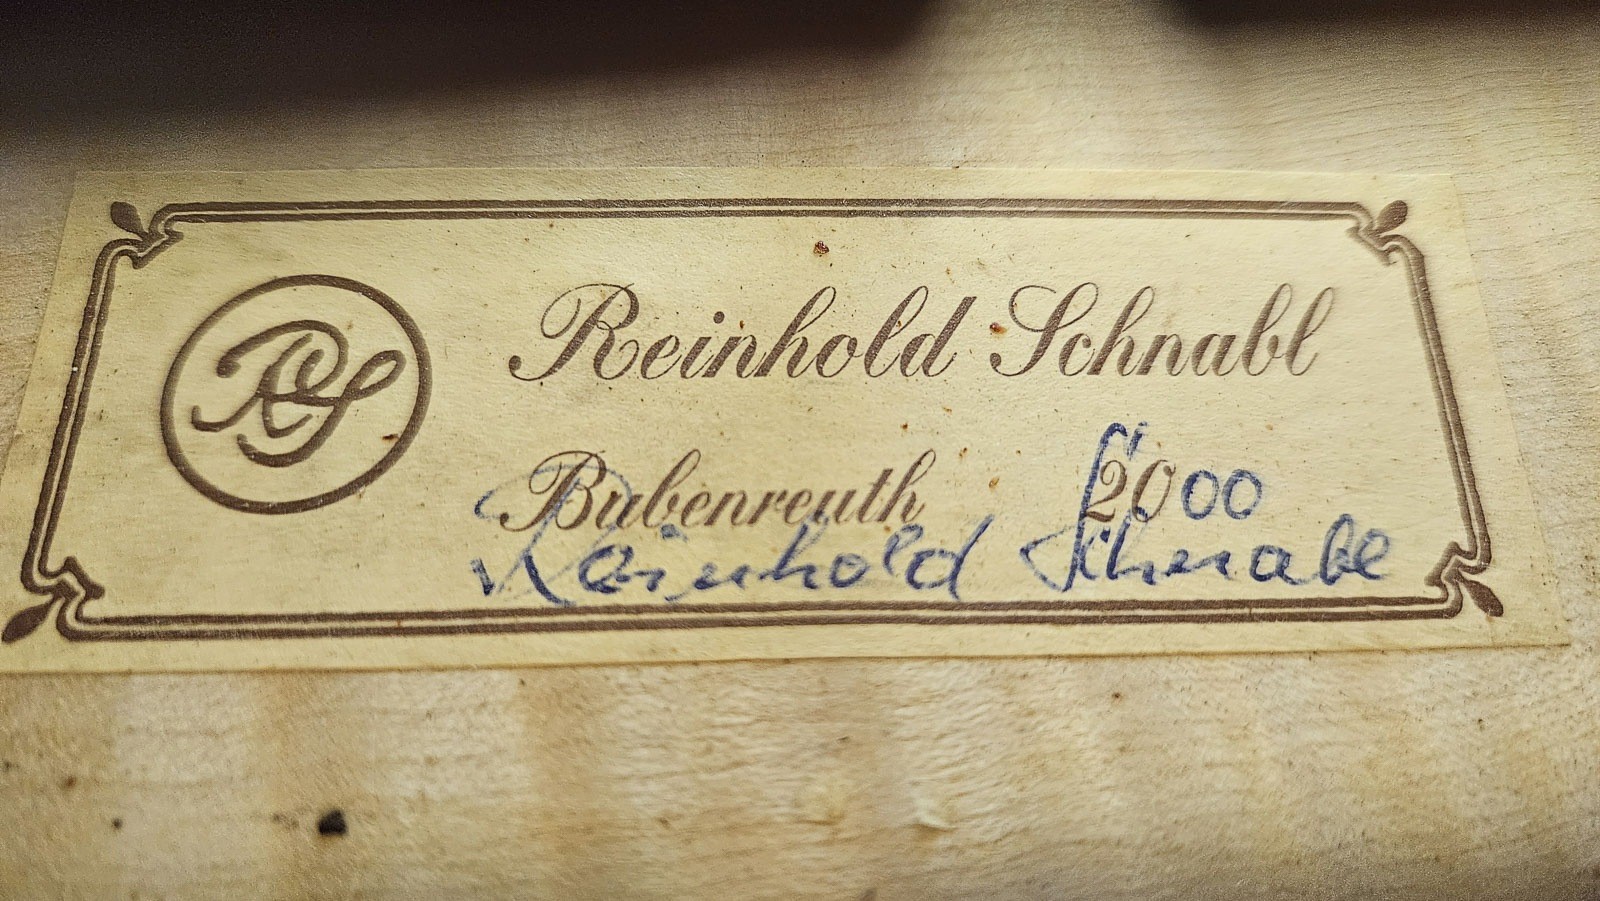 RS Reinhold Schnabl
Bubenreuth 2000
Reinhold Schnabl